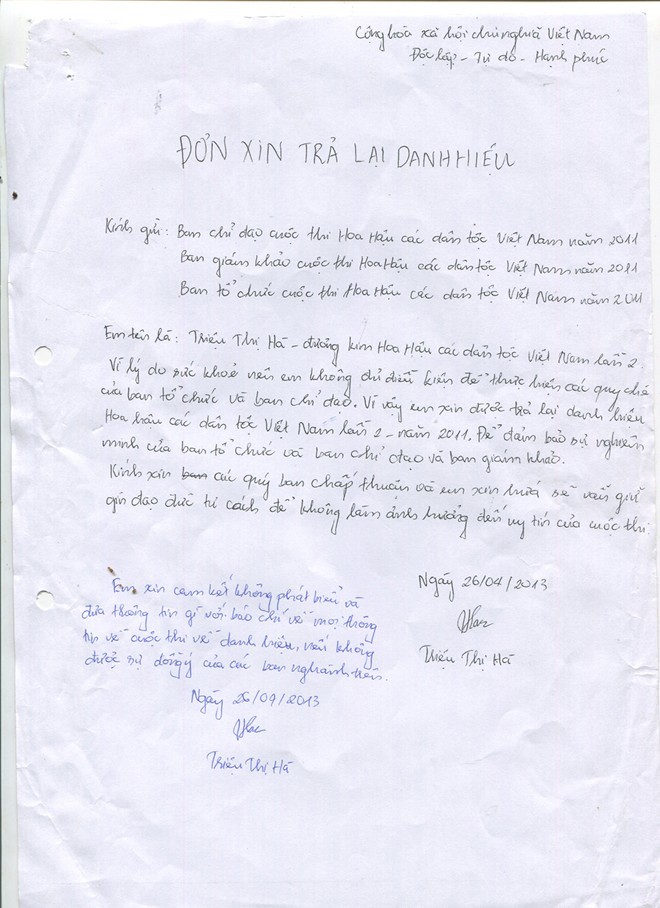 Cộng hòa xã hội chủ nghĩa Việt Nam
Độc lập - Tự do - Hạnh phúc
ĐƠN XIN TRẢ LẠI DANH HIỆU
Kính gửi: Ban chỉ đạo cuộc thi Hoa Hậu các dân tộc Việt Nam năm 2011
Ban giám khảo cuộc thi Hoa Hậu các dân tộc Việt Nam năm 2011
Ban tổ chức cuộc thi Hoa Hậu các dân tộc Việt Nam năm 2011
Em tên là: Triệu Thị Hà - đương kim Hoa Hậu các dân tộc Việt Nam lần 2.
Vì lý do sức khoẻ nên em không đủ điều kiện để thực hiện các quy chế
của ban tổ chức và ban chỉ đạo. Vì vậy em xin được trả lại danh hiệu
Hoa hậu các dân tộc Việt Nam lần 2 - năm 2011. Để đảm bảo sự nghiêm
minh của ban tổ chức và ban chỉ đạo và ban giám khảo.
Kính xin ban các quý ban chấp thuận và em xin hứa sẽ vẫn giữ
gìn đạo đức tư cách để không làm ảnh hưởng đến uy tín của cuộc thi.
Ngày 26/04/2013
Triệu Thị Hà
Em xin cam kết không phát biểu và
đưa thông tin gì với báo chí về mọi thông
tin về cuộc thi về danh hiệu, nếu không
được sự đồng ý của các ban nghành trên.
Ngày 26/09/2013
Triệu Thị Hà